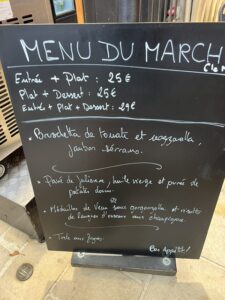 MENU DU MARCH
Entrée + Plat : 25€
Plat + Dessert : 25€
Entrée + Plat + Dessert : 29€
• Bruschetta de tomate et mozzarella,
jambon serrano.
• Pavé de Julienne, huile vierge et purée de
patates douces
ou
• Médaillon de Veau sauce gorgonzola et risotto
de langues d'oiseaux aux champignons
• Tarte aux figues
Bon Appétit !